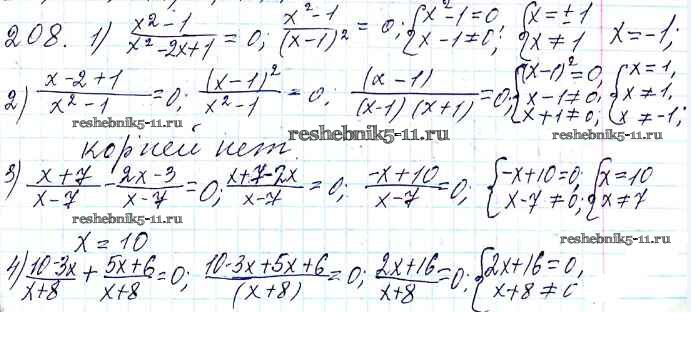 208. 1) (x²-1)/(x²-2x+1) = 0; (x²-1)/(x-1)² = 0; {x²-1=0, x-1≠0; {x=±1 x≠1 x=-1;
2) (x-2+1)/(x²-1) = 0; (x-1)²/(x²-1) = 0; (x-1)/((x-1)(x+1)) = 0; {(x-1)²=0, x-1≠0, x+1≠0; {x=1, x≠1, x≠-1;
reshebnik5-11.ru reshebnik5-11.ru
корней нет.
3) (x+7)/(x-7) - (2x-3)/(x-7) = 0; (x+7-2x)/(x-7) = 0; (-x+10)/(x-7) = 0; {-x+10=0; x-7≠0; {x=10 x≠7
reshebnik5-11.ru reshebnik5-11.ru
x=10
4) (10-3x)/(x+8) + (5x+6)/(x+8) = 0; (10-3x+5x+6)/(x+8) = 0; (2x+16)/(x+8) = 0; {2x+16=0, x+8≠0